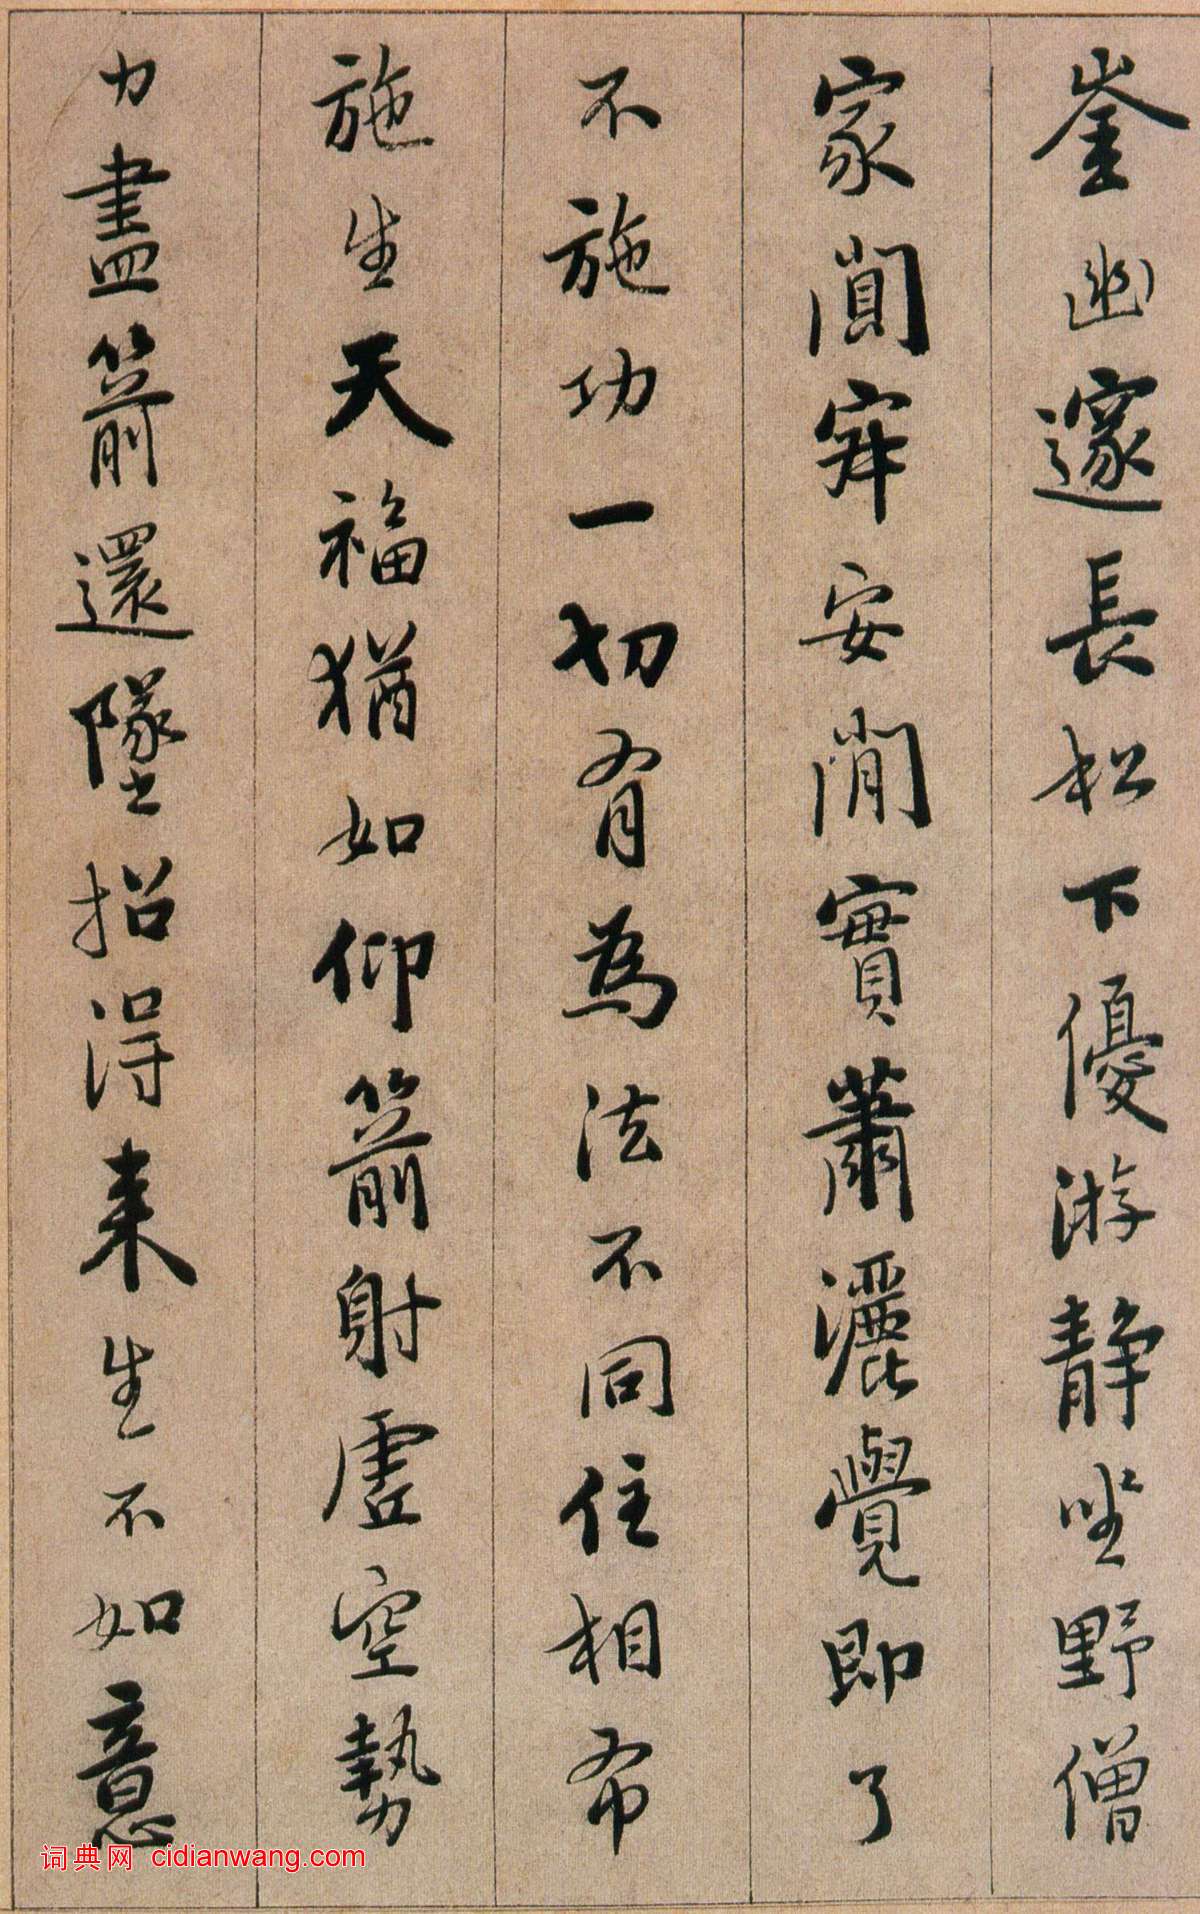 崟幽邃長松下優游靜坐野僧
家闃寂安閑實蕭灑覺即了
不施功一切有為法不同住相布
施生天福猶如仰箭射虛空勢
力盡箭還墜招得來生不如意
词典网 cidianwang.com